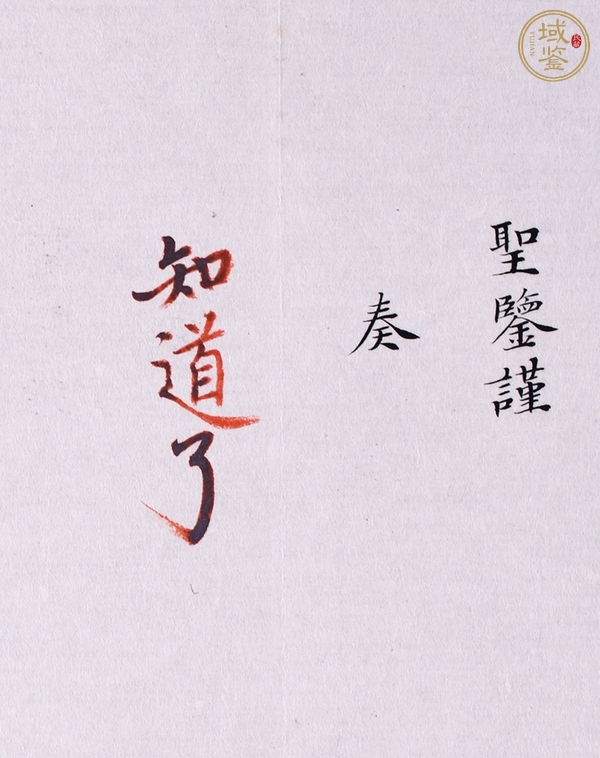 聖鑒謹
奏
知道了
域鉴
YUJIAN